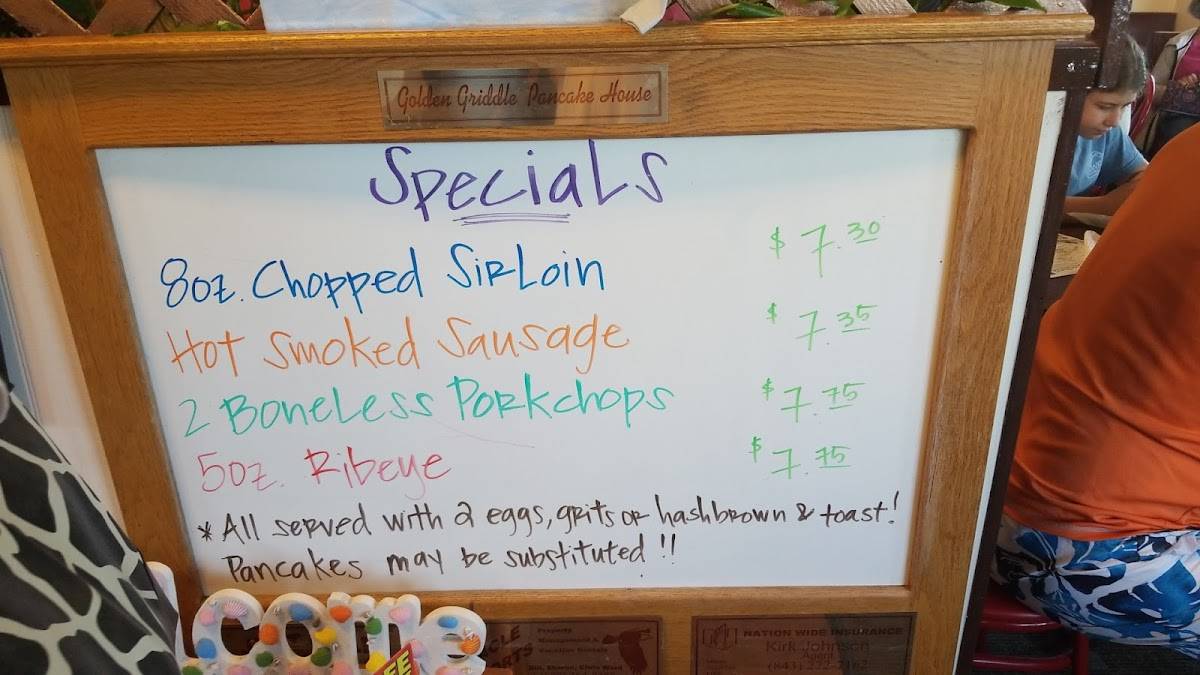 Golden Griddle Pancake House
Specials
8oz. Chopped Sirloin $7.30
Hot Smoked Sausage $7.35
2 Boneless Porkchops $7.75
5oz. Ribeye $7.75
* All served with 2 eggs, grits or hashbrown & toast!
Pancakes may be substituted!!
come
Property
Vacation Rentals
NATION WIDE INSURANCE
Kirk Johnson
Agent